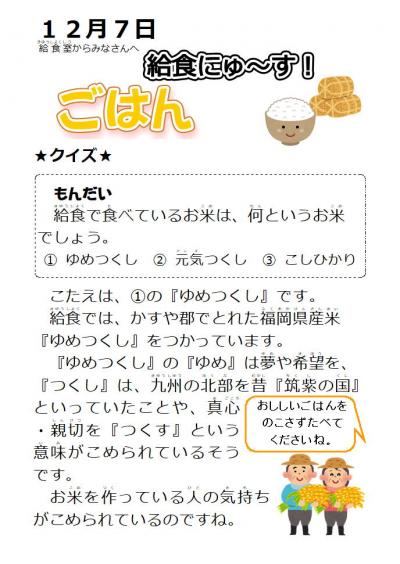 12月7日
給食室からみなさんへ
給食にゅ～す！
ごはん
★クイズ★
もんだい
給食で食べているお米は、何というお米
でしょう。
① ゆめつくし ② 元気つくし ③ こしひかり
こたえは、①の『ゆめつくし』です。
給食では、かすや郡でとれた福岡県産米
『ゆめつくし』をつかっています。
『ゆめつくし』の『ゆめ』は夢や希望を、
『つくし』は、九州の北部を昔『筑紫の国』
といっていたことや、真心
・親切を『つくす』という
意味がこめられているそう
です。
お米を作っている人の気持ち
がこめられているのですね。
おししいごはんを
のこさずたべて
くださいね。